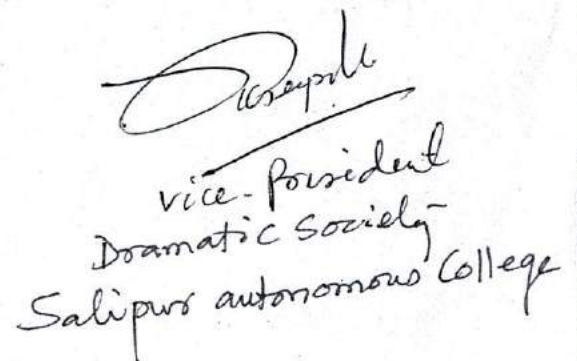 vice-President
Dramatic Society
Salipur autonomous College